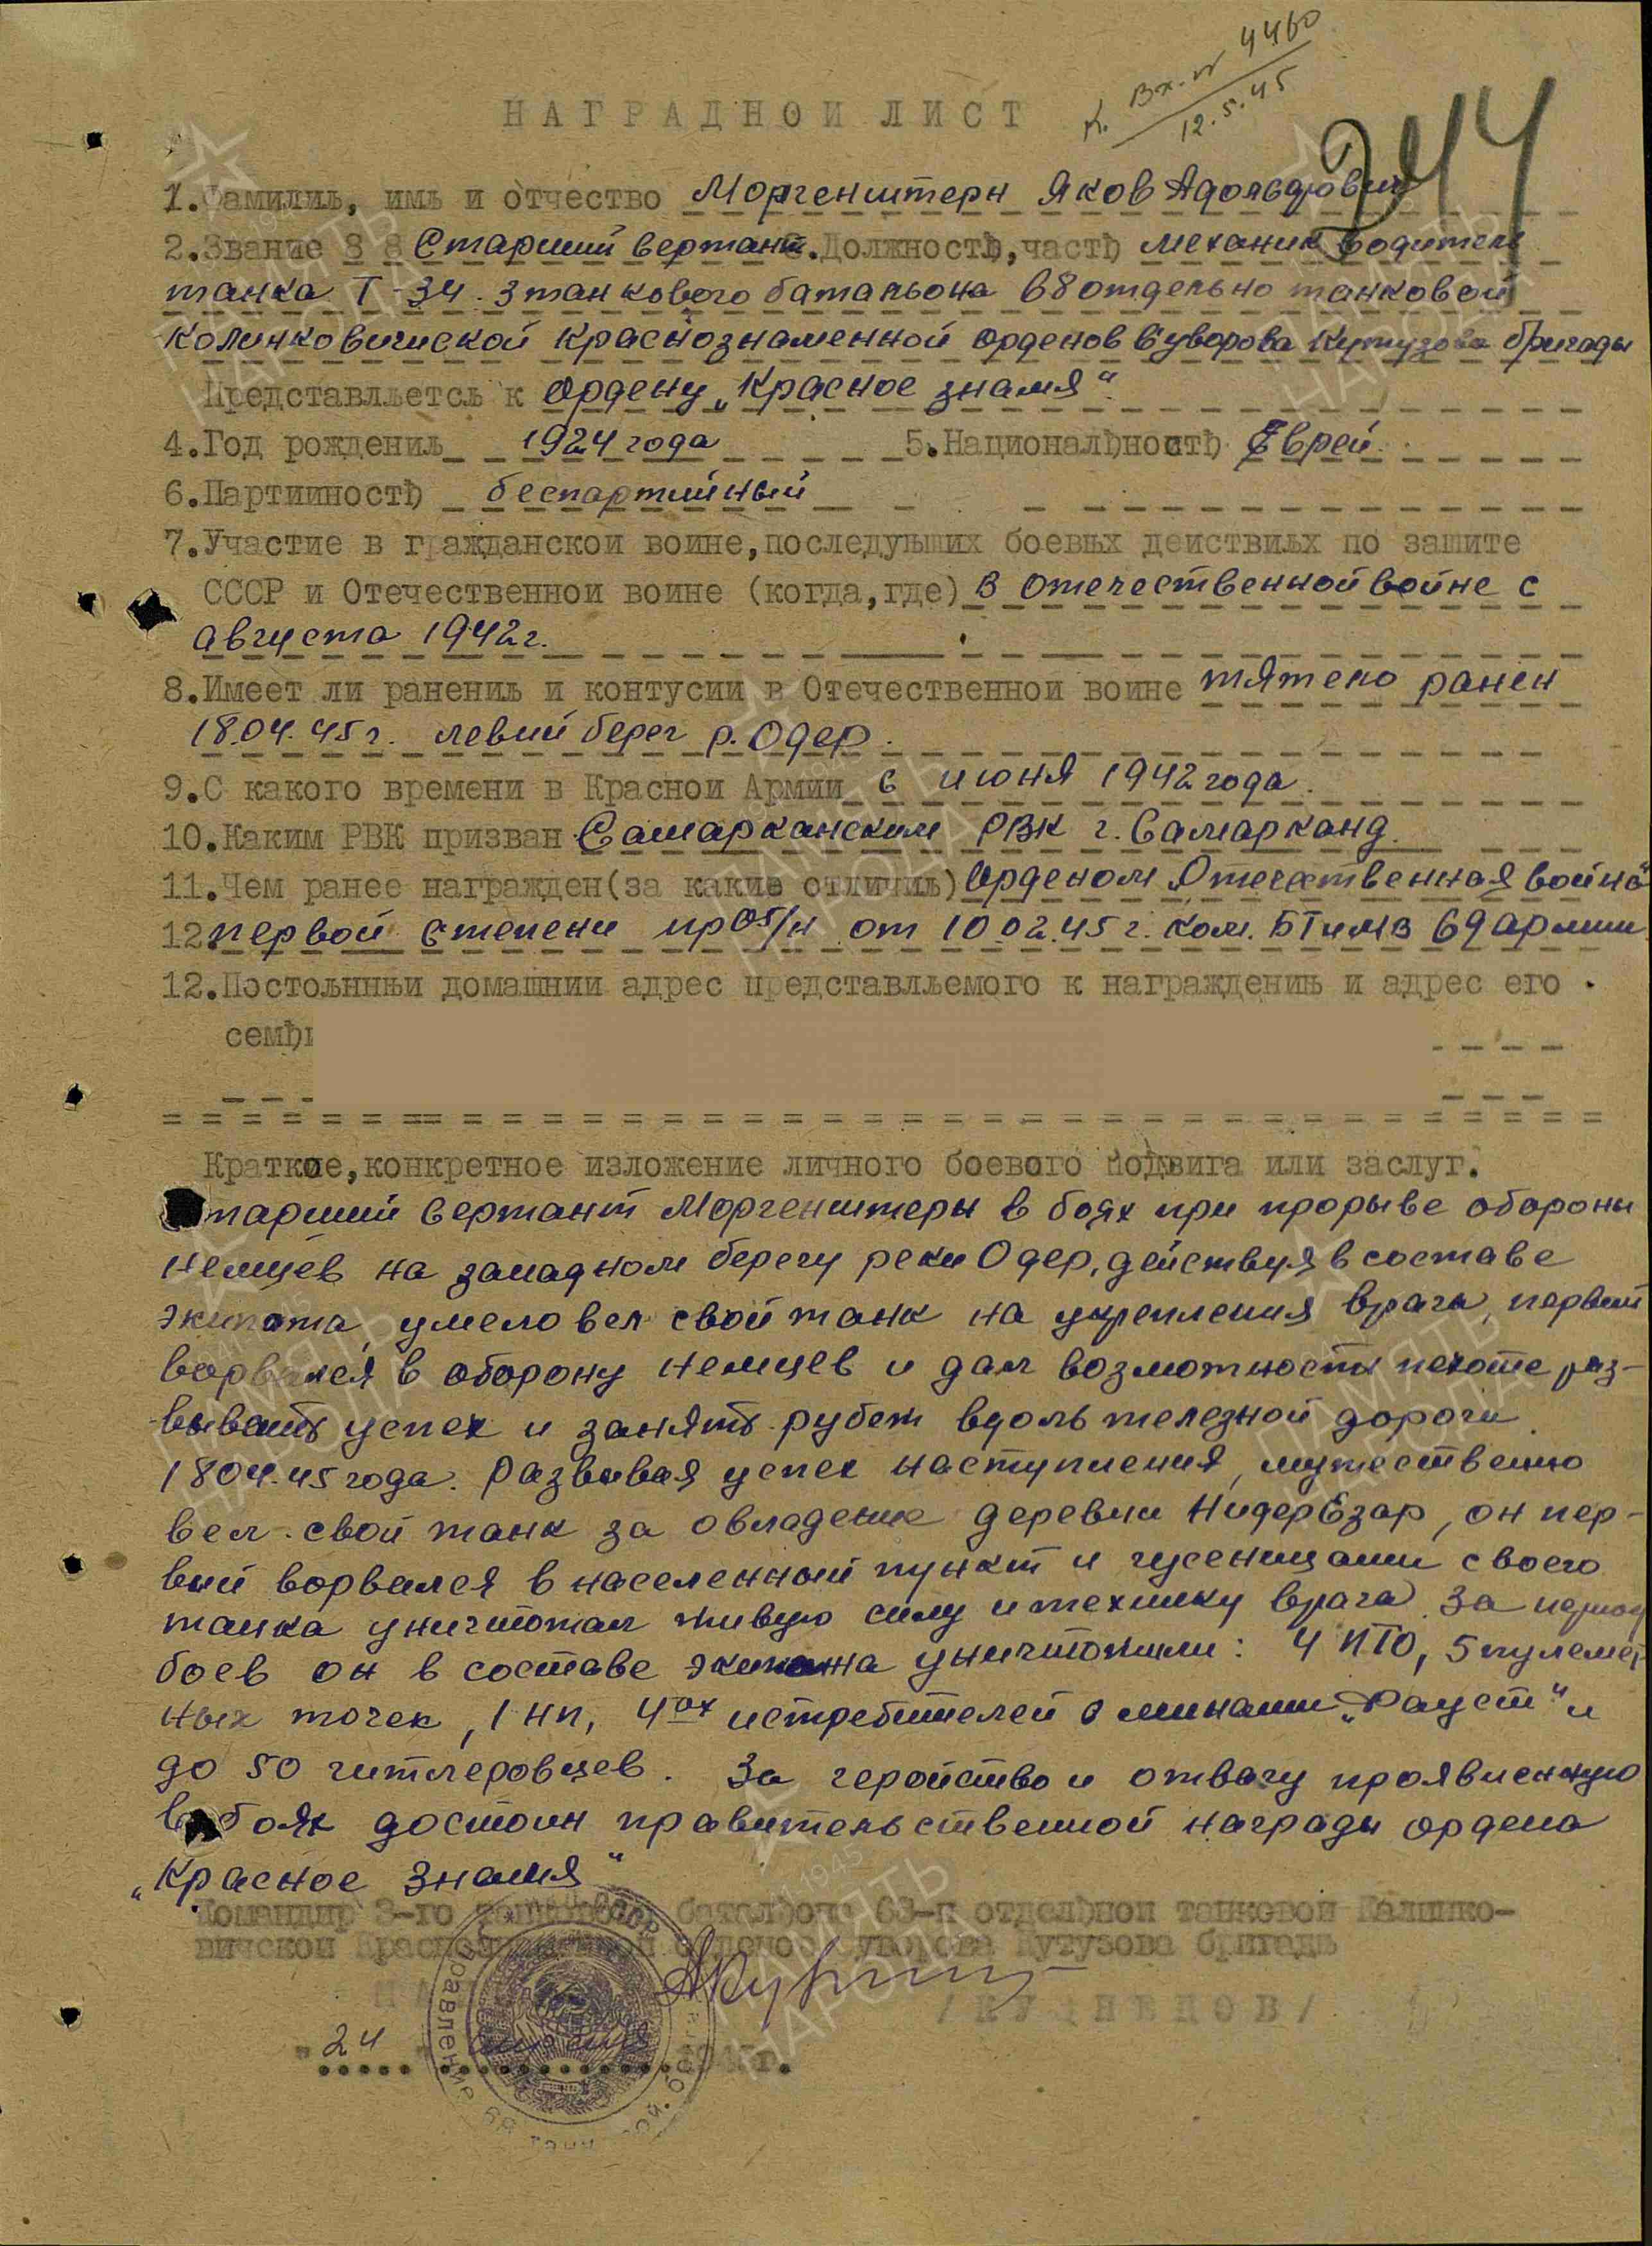 К. Вх. № 4460
12.5.45
244
НАГРАДНОИ ЛИСТ
1. Фамилиь, имь и отчество Моргенштерн Яков Адольфович
2. Звание Старший Сержант 3. Должность, часть механик водитель
танка Т-34. 3 танкового батальона 68 отдельно танковой
Колинковичиской Краснознаменной орденов Суворова Кутузова бригады
Представльетсь к ордену „Красное знамя"
4. Год рождениь 1924 года 5. Националъностъ Еврей
6. Партииностъ беспартийный
7. Участие в гражданскои воине, последуьших боевых деиствиьх по зашите
СССР и Отечественнои воине (когда, где) в отечественной войне с
августа 1942 г.
8. Имеет ли ранениь и контусии в Отечественнои воине тяжело ранен
18.04.45 г. левий берег р. Одер.
9. С какого времени в Краснои Армии с июня 1942 года.
10. Каким РВК призван Самарканским РВК г. Самарканд.
11. Чем ранее награжден (за какие отличиь) орденом „Отечественная война"
12 первой степени пр 05/н от 10.02.45 г. ком. БТ и МВ 69 армии
12. Постоьнньи домашнии адрес представльемого к награждениь и адрес его
семъи
Краткое, конкретное изложение личного боевого подвига или заслуг.
Старший Сержант Моргенштерн в боях при прорыве обороны
немцев на западном берегу реки Одер, действуя в составе
экипажа, умело вел свой танк на укрепления врага, первый
ворвался в оборону немцев и дал возможность пехоте раз-
вывать успех и занять рубеж вдоль железной дороги
18.04.45 года. Развивая успех наступления, мужественно
вел свой танк за овладение деревни НидерЕзар, он пер-
вий ворвался в населенный пункт и гусеницами своего
танка уничтожал живую силу и технику врага. За период
боев он в составе экипажа уничтожили: 4 ПТО, 5 пулемет
ных точек, 1 НП, 4ох истребителей с минами „Фауст" и
до 50 гитлеровцев. За геройство и отвагу проявленную
в боях достоин правительственной награды ордена
„Красное Знамя"
Командир 3-го танкового баталъона 68-и отделънои танковои Калинко-
вичскои Краснознаменнои орденов Суворова Кутузова бригады
/КУЗНЕЦОВ/
"24" апреля 1945 г.